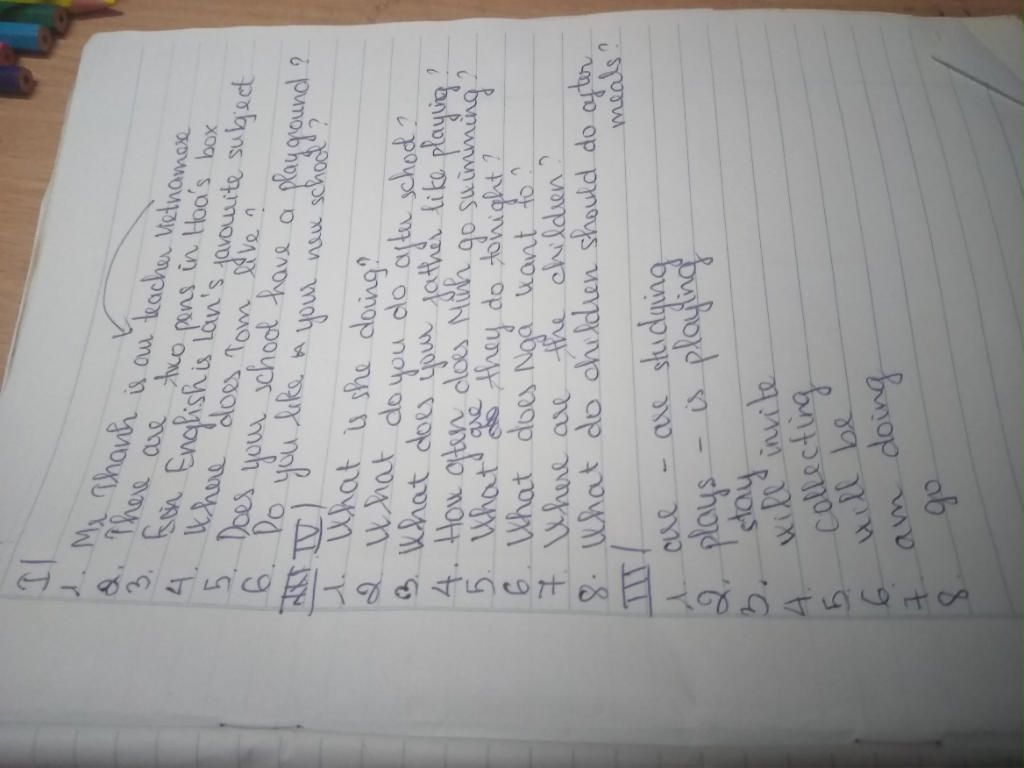 I/
1. Mr Thanh is an teacher Vietnamese
2. There are two pens in Hoa's box
3. English is Lan's favourite subject
4. Where does Tom live?
5. Does your school have a playground?
6. Do you like your new school?
IV/
1. What is she doing?
2. What do you do after school?
3. What does your father like playing?
4. How often does Minh go swimming?
5. What are they do tonight?
6. What does Nga want to?
7. Where are the children?
8. What do children should do after
meals?
III/
1. are - are studying
2. plays - is playing
3. stay
4. will invite
5. collecting
6. will be
7. am doing
8. go